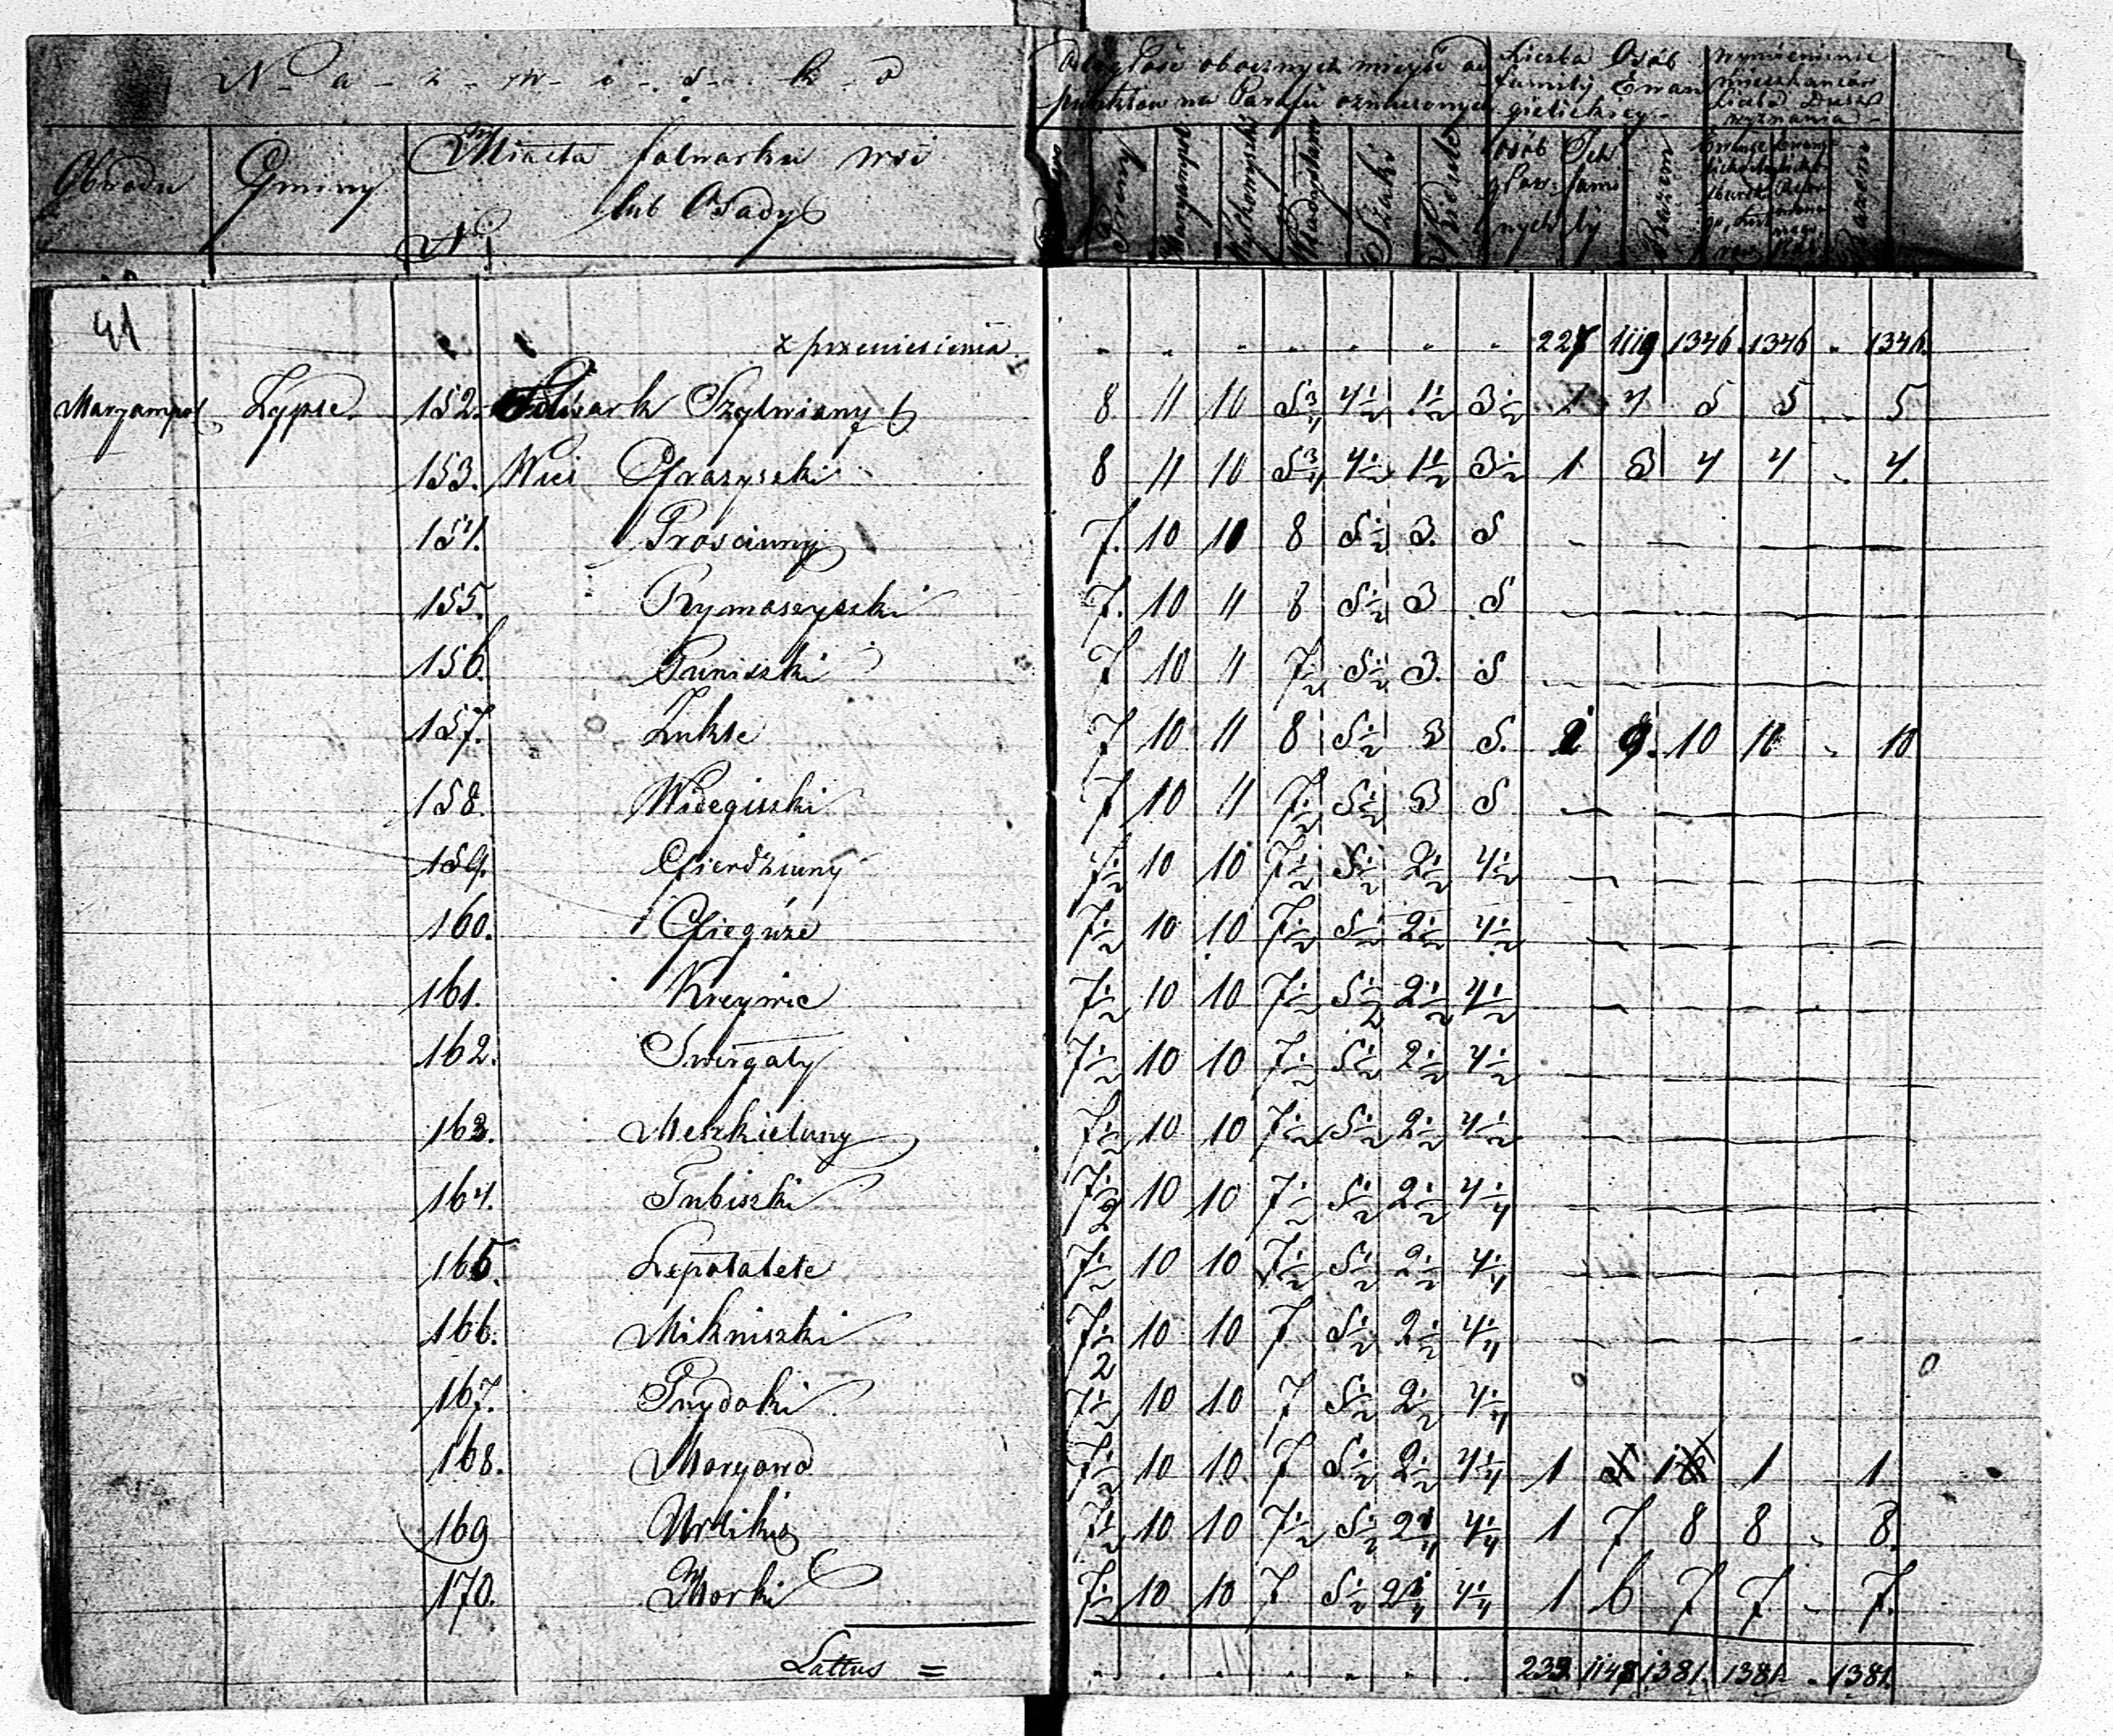 N a z w i s k o
Odległość obocznych mieysc od
punktów na Parafii oznaczonych
Liczba Osób
familij Ewan
gielickiey
Wymienienie
mieszkańców
Liczba Dusz
wyznania
Obwodu
Gminy
Miasta folwarku wsi
lub Osady
N
Preny
Maryampol
Wyłkowyszki
Władysławow
Szaki
Osób głównych
Ich familij
Razem
Razem
41
z przeniesienia " " " " " " " 227 1119 1346 1346 " 1346.
Maryampol Lypse. 152. Folwark Szylwiany 8 11 10 5 3/4 4 1/2 1 1/2 3 1/2 1 4 5 5 - 5
153. Wieś Grazyszki 8 11 10 5 3/4 4 1/2 1 1/2 3 1/2 1 3 4 4 - 4.
154. Prosciuny 7. 10 10 8 5 1/2 3. 5 - - - - -
155. Rymaszyszki 7. 10 11 8 5 1/2 3 5 - - - - -
156. Puniszki 7 10 11 7 1/2 5 1/2 3. 5 - - - - -
157. Lukse 7 10 11 8 5 1/2 3 5. 1 9. 10 10 - 10
158. Widegiszki 7 10 11 7 1/2 5 1/2 3 5 - - - - -
159. Gierdziuny 7 1/2 10 10 7 1/2 5 1/2 2 1/2 4 1/2 - - - - -
160. Gieguze 7 1/2 10 10 7 1/2 5 1/2 2 1/2 4 1/2 - - - - -
161. Kreywie 7 1/2 10 10 7 1/2 5 1/2 2 1/2 4 1/2 - - - - -
162. Swirgały 7 1/2 10 10 7 1/2 5 1/2 2 1/2 4 1/2 - - - - -
163. Meszkieluny 7 1/2 10 10 7 1/2 5 1/2 2 1/2 4 1/2 - - - - -
164. Tubiszki 7 1/2 10 10 7 1/2 5 1/2 2 1/2 4 1/4 - - - - -
165. Lepołatete 7 1/2 10 10 7 1/2 5 1/2 2 1/2 4 1/4 - - - - -
166. Mikniszki 7 1/2 10 10 7 5 1/2 2 1/2 4 1/4 - - - - -
167. Puydoki 7 1/2 10 10 7 5 1/2 2 1/2 4 1/4
168. Moryowo 7 1/2 10 10. 7 5 1/2 2 1/2 4 1/4 1 1 1 - 1
169 Urtikie 7 1/2 10 10 7 1/2 5 1/2 2 1/4 4 1/4 1 7 8 8 - 8.
170. Morki 7 1/2 10 10 7 5 1/2 2 1/4 4 1/4 1 6 7 7 - 7.
Lattus = " " " " " " " 233 1148 1381. 1381. - 1381.